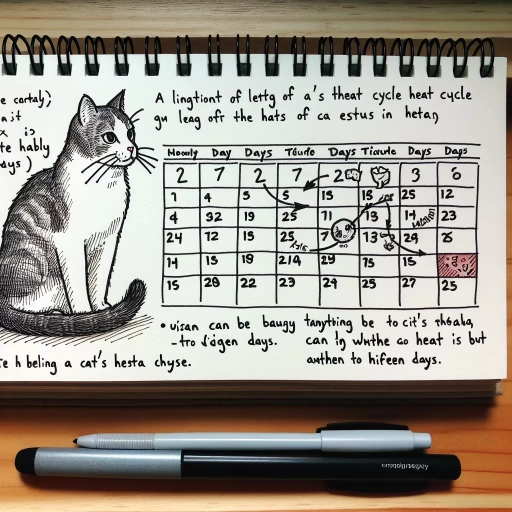 e cartaly)
a it
x is
te hably
days)
A lingtiont of lettg of a's theat cycle heat cycle
gu leag off the hats of ca estus in hetan
Day Days Days Days
2 7 2 7 2 2 3 6
1 4 5 5 15 15 25 12
4 32 19 25 11 13 14 23
24 12 15 25 7 13 29
14 15 19 214 29 75 15
15 28 22 23 24 25 27 25
• uisan can be baugy
-tro didgen days.
tanything be to cit's
can ly whthe co heat is but
anthen to hifeen days.
e h beling a cat's hesta chyse.